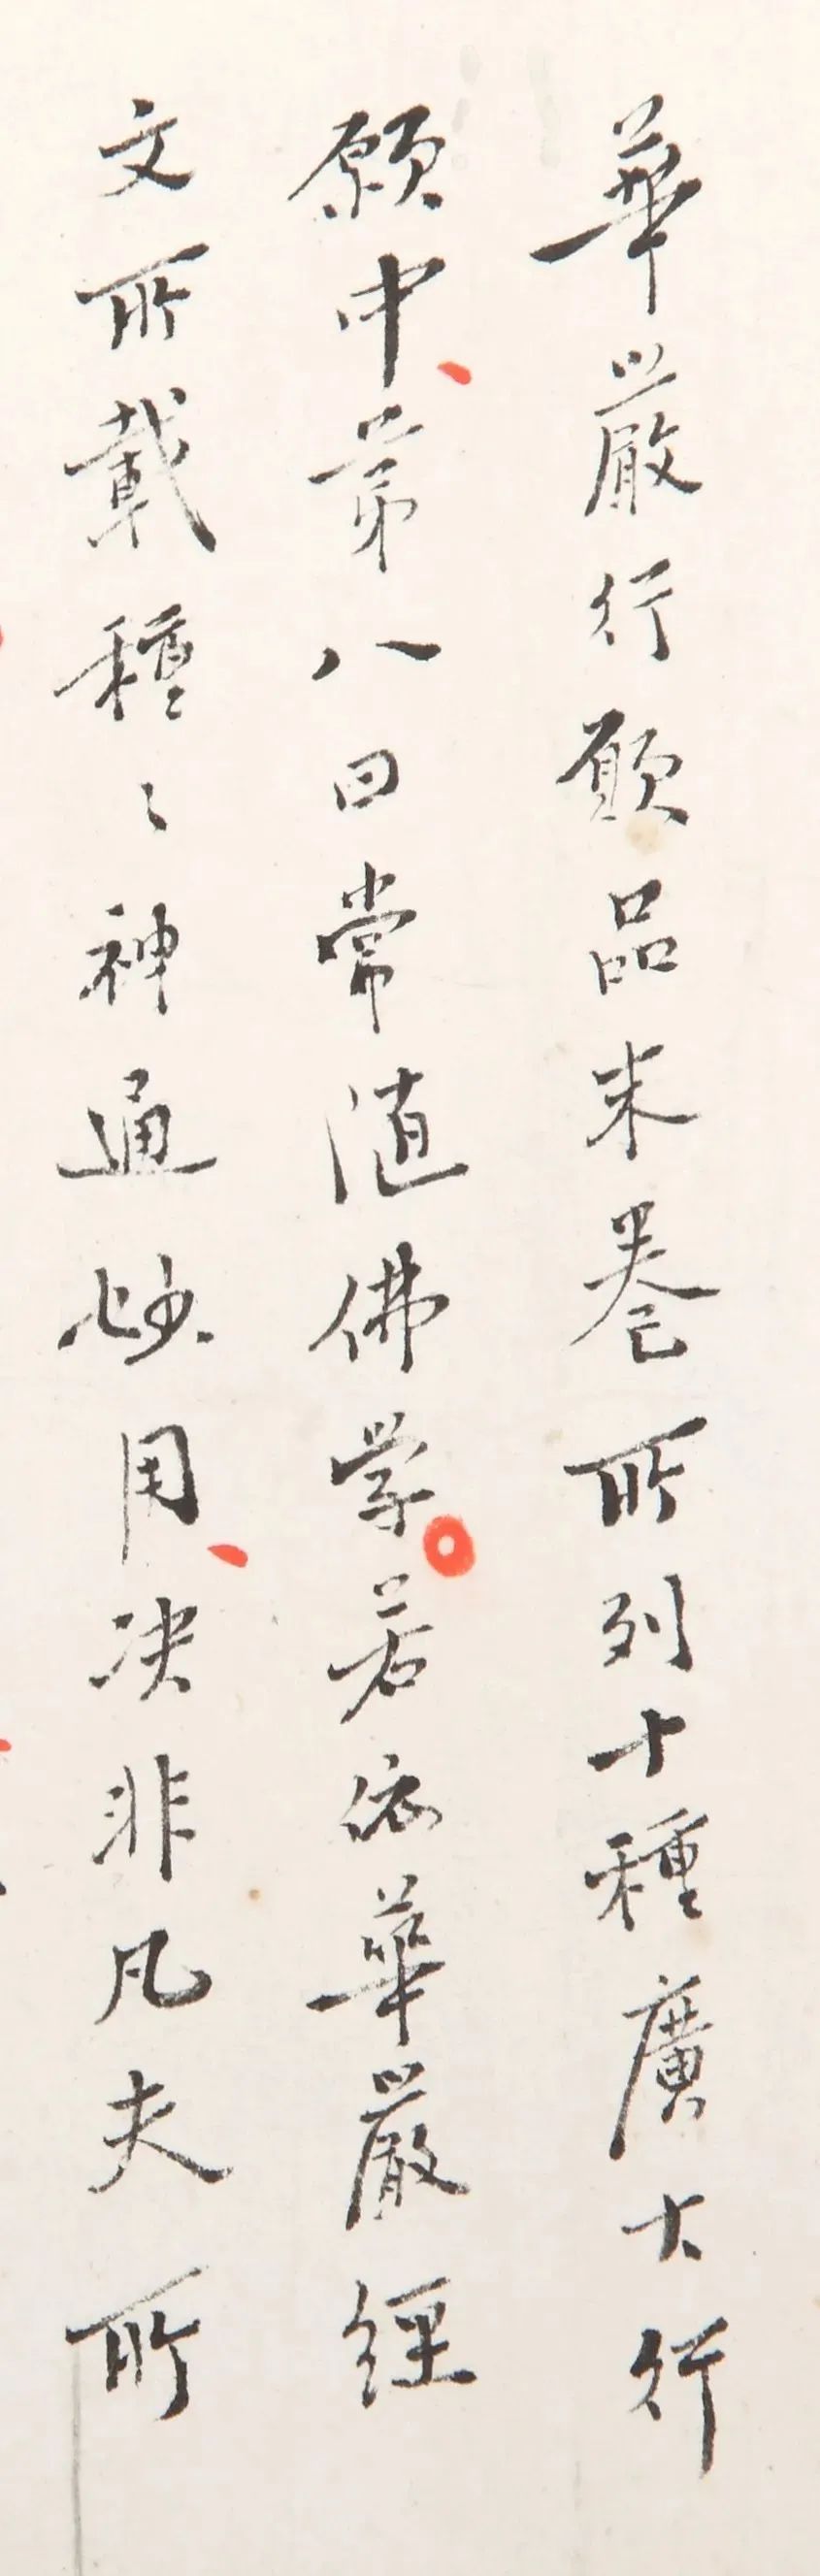 華嚴行願品末卷所列十種廣大行
願中第八曰常随佛学若依華嚴經
文所載種〻神通妙用决非凡夫所